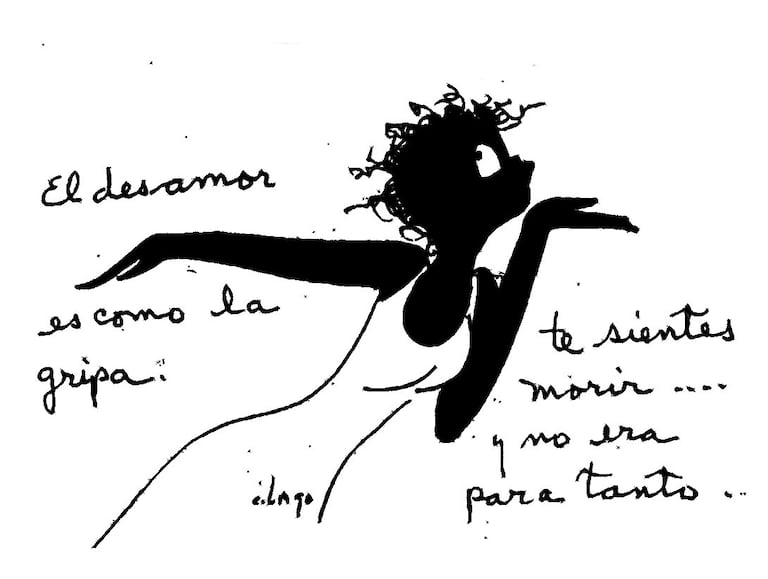 El desamor
es como la
gripa.
te sientes
morir ....
y no era
para tanto ..